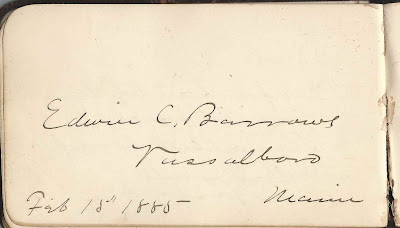 Edwin C. Barrows
Vassalboro
Maine
Feb 15th 1885